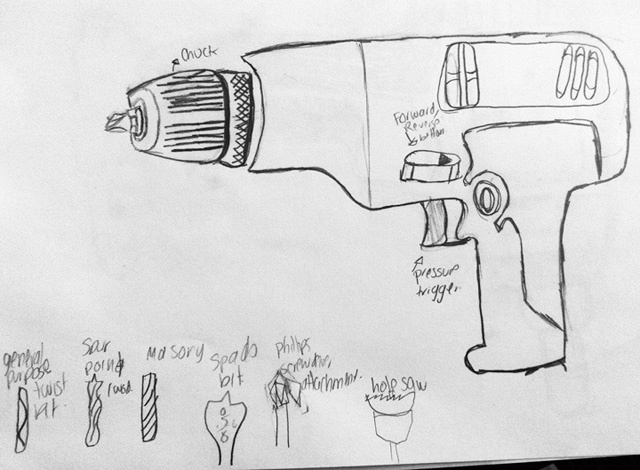 Chuck
Forward,
Reverse
button
pressure
trigger.
general
purpose
twist
bit.
Spur
point
twist
Masory
spade
bit
philips
screwdriver
attachment.
hole saw